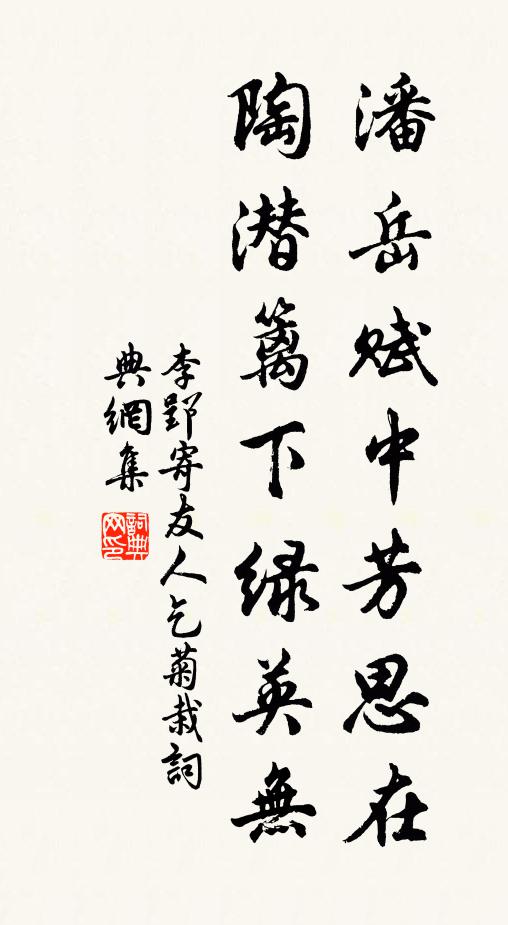 潘岳賦中芳思在
陶潛籬下綠英無
李郢寄友人乞菊栽詞
典網集
詞典
网印